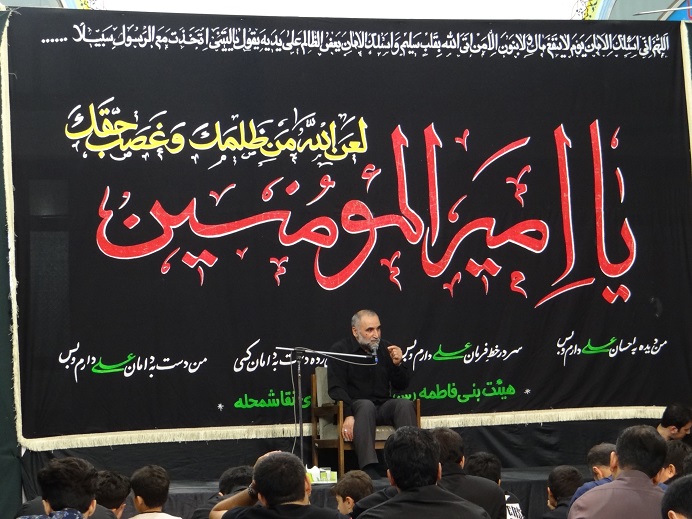 اللهم انی اسئلک الامان یوم لا ینفع مال و لا بنون الا من اتی الله بقلب سلیم و اسئلک الامان یوم یعض الظالم علی یدیه یقول یا لیتنی اتخذت مع الرسول سبیلا ......
لعن الله من ظلمک و غصب حقک
یا امیرالمؤمنین
من دیده به احسان علی دارم و بس
سر در خط فرمان علی دارم و بس
دست به دامان کسی
من دست به دامان علی دارم و بس
هیئت بنی فاطمه
نقاشمحله